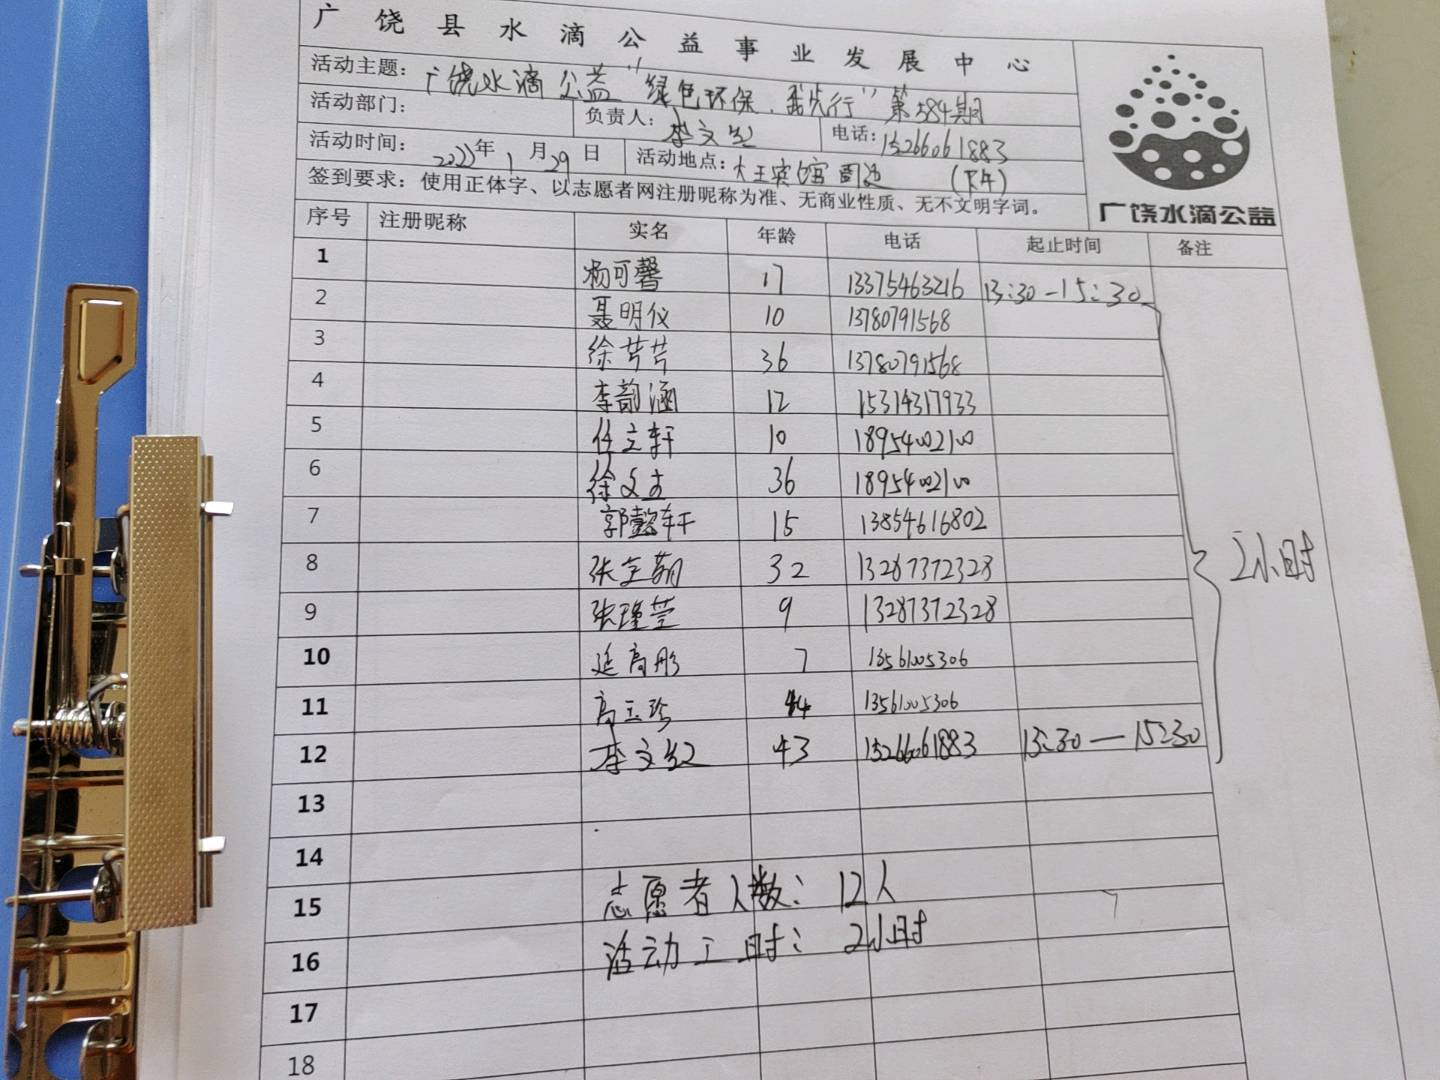 广饶县水滴公益事业发展中心
活动主题：广饶水滴公益"绿色环保，我先行"第584期
活动部门： 负责人：李文红 电话：15266061883
活动时间：2022年1月29日 活动地点：大王宾馆周边（下午）
签到要求：使用正体字、以志愿者网注册昵称为准、无商业性质、无不文明字词。
广饶水滴公益
序号 注册昵称 实名 年龄 电话 起止时间 备注
1 杨可馨 17 13375463216 13:30-15:30
2 聂明仪 10 13780791568
3 徐芹芹 36 13780791568
4 李韵涵 12 15314317933
5 任文轩 10 18954002100
6 徐文 36 18954002100
7 郭懿轩 15 13854616802 2小时
8 张 32 13287372328
9 张瑾萱 9 13287372328
10 延高彤 7 13561005306
11 高玉珍 44 13561005306
12 李文红 43 15266061883 13:30—15:30
13
14
15 志愿者人数：12人
16 活动工时：2小时
17
18